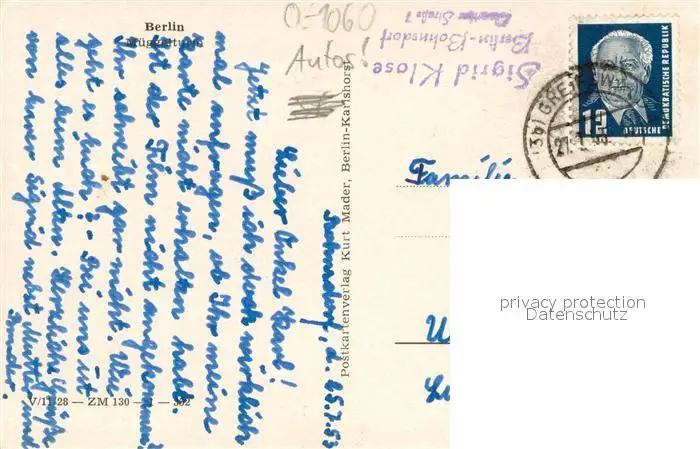 Berlin
Müggelturm
0-1060
Autos!
Sigrid Klose
Berlin-Bohnsdorf
Straße 7
12
DEUTSCHE
DEMOKRATISCHE REPUBLIK
GREIFSW
Bohnsdorf, d. 15.7.53
Lieber Onkel Karl!
Jetzt muß ich doch wirklich
mal anfragen, ob Ihr meine
Karte nicht erhalten habt.
Ist der Film nicht angekommen?
Ihr schreibt gar nicht. Wie
geht es Euch? - Bei uns ist
alles beim alten. Herzliche Grüße
von Eurer Sigrid nebst Mutti und
Bruder.
Postkartenverlag Kurt Mader, Berlin-Karlshorst
V/11-28 — ZM 130 — 1 — 352
Familie
privacy protection
Datenschutz